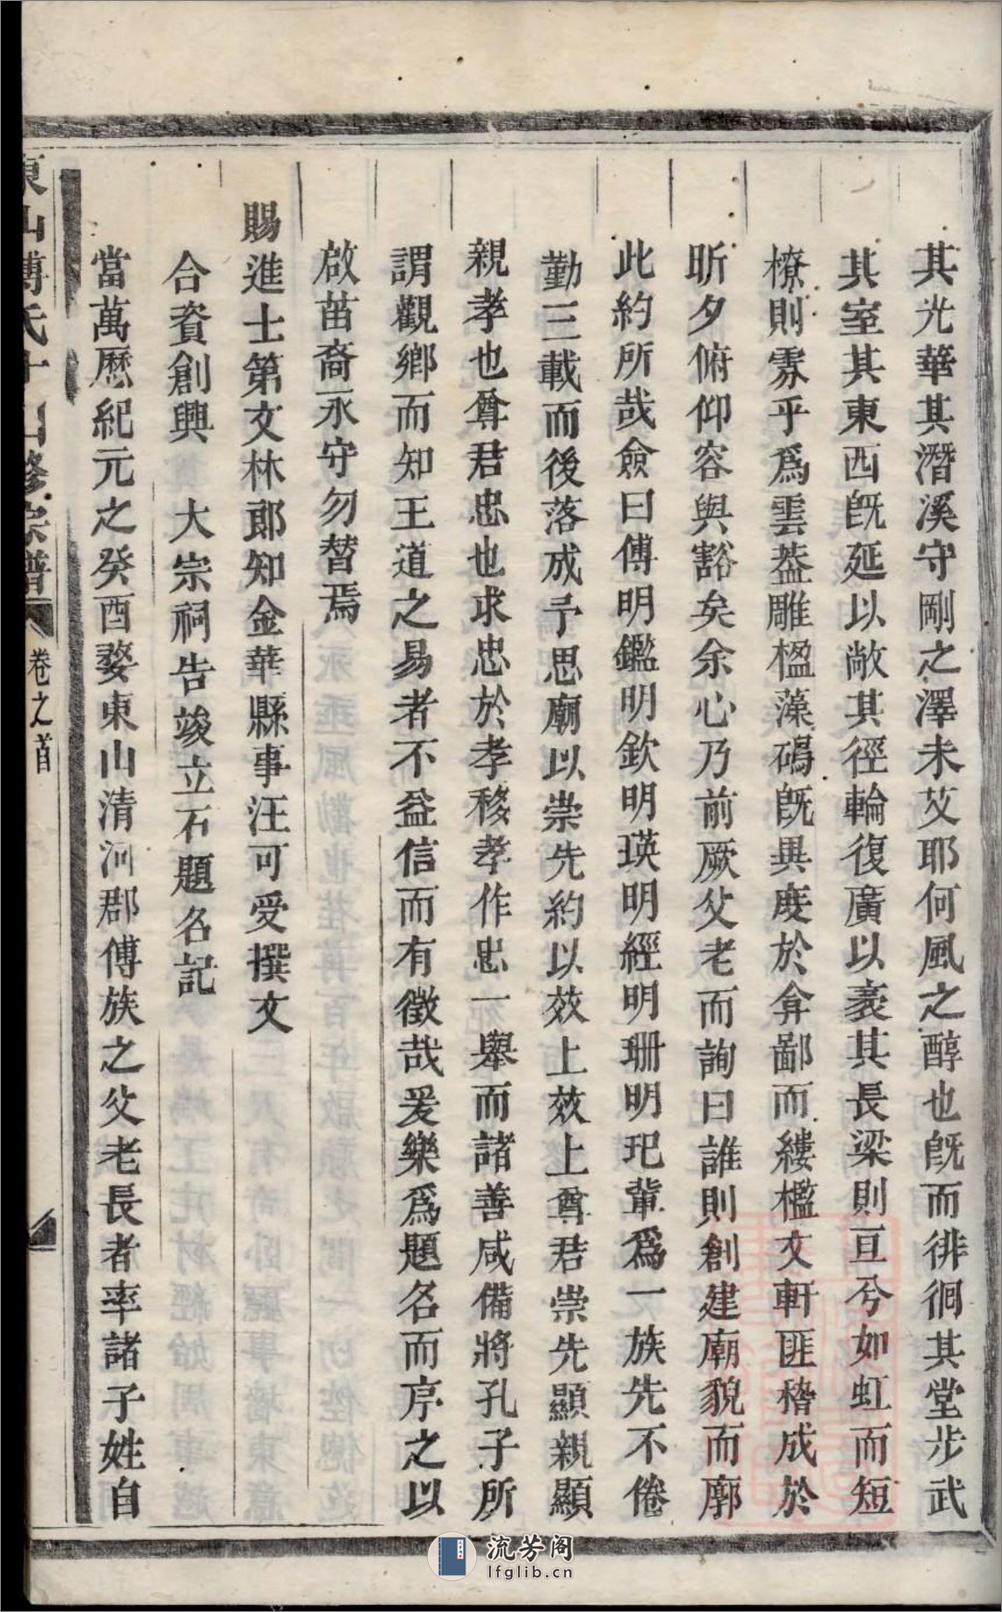 其光華其潛溪守剛之澤未艾耶何風之醇也旣而徘徊其堂步武
其室其東西旣延以敞其徑輪復廣以袤其長梁則亘兮如虹而短
橑則霧乎爲雲葢雕楹藻磶旣異度於弇鄙而縷檻文軒匪稽成於
昕夕俯仰容與豁矣余心乃前厥父老而詢曰誰則創建廟貌而廓
此約所哉僉曰傅明鑑明欽明瑛明經明珊明玘輩爲一族先不倦
勤三載而後落成予思廟以崇先約以效上效上尊君崇先顯親顯
親孝也尊君忠也求忠於孝移孝作忠一舉而諸善咸備將孔子所
謂觀鄉而知王道之易者不益信而有徵哉爰樂爲題名而序之以
啟苗裔永守勿替焉
賜進士第文林郎知金華縣事汪可受撰文
合資創興 大宗祠告竣立石題名記
當萬厯紀元之癸酉婺東山清河郡傅族之父老長者率諸子姓自
東山傅氏十 修宗譜 卷之首
流芳阁
lfglib.cn